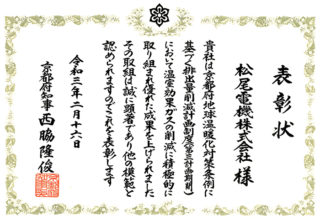 表彰状
松尾電機株式会社 様
貴社は京都府地球温暖化対策条例に
基づく排出量削減計画制度(第三計画期間)
において温室効果ガスの削減に積極的に
取り組まれ優れた成果を上げられました
その取組は誠に顕著であり他の模範と
認められますのでこれを表彰します
令和三年二月十六日
京都府知事 西脇隆俊